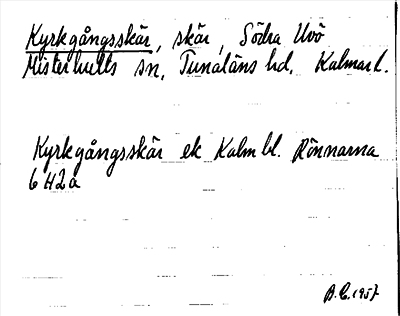 Kyrkgångsskär, skär, Södra Uvö
Misterhults sn, Tunaläns hd, Kalmar l.
Kyrkgångsskär ek Kalm bl. Rönnarna
6 H2a
B.E. 1957